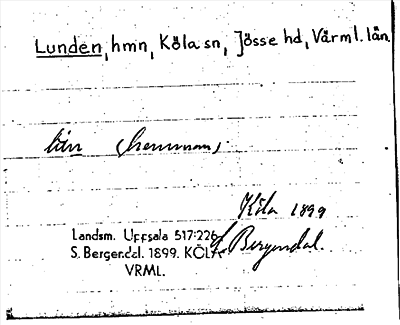 Lunden, hmn, Köla sn, Jösse hd, Värml. län.
(hemman)
Köla 1899
Landsm. Uppsala 517:226
S. Bergendal. 1899. KÖLA
S Bergendal.
VRML.